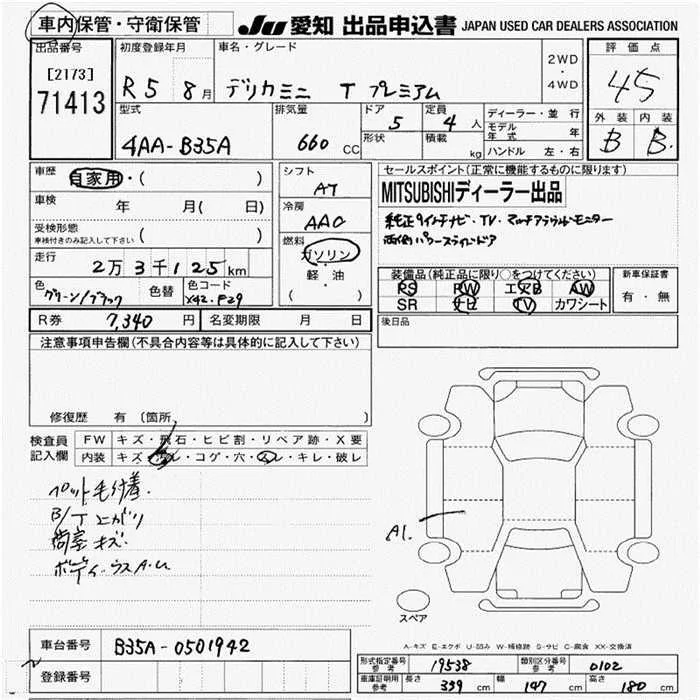 車内保管・守衛保管 JU 愛知 出品申込書 JAPAN USED CAR DEALERS ASSOCIATION
出品番号 初度登録年月 車名・グレード 2WD・4WD 評価点
[2173]
71413
R5 8月 デリカミニ T プレミアム 45
型式 排気量 ドア 定員 ディーラー・並行 外装 内装
4AA-B35A 660 CC 5 4人 モデル年式 年 B B
形状 積載 kg ハンドル 左・右
車歴 自家用・( ) シフト AT セールスポイント(正常に機能するものに限ります)
MITSUBISHIディーラー出品
車検 年 月( 日) 冷房 AAC 純正9インチナビ・TV・マルチアラウンドモニター
受検形態 ( ) 両側パワースライドドア
車検付きのみ記入して下さい
燃料 ガソリン 軽・油 ( )
走行 2万3千125km
装備品(純正品に限り○をつけてください) 新車保証書
色 グリーン/ブラック 色替 色コード X42.P29
PS PW エアB AW 有・無
SR ナビ TV カワシート
R券 7,340円 名変期限 月 日 後日品
注意事項申告欄(不具合内容等は具体的に記入して下さい)
修復歴 有 〔箇所 〕
検査員記入欄 FW キズ・飛石・ヒビ割・リペア跡・X要
内装 キズ・汚レ・コゲ・穴・スレ・キレ・破レ
ペット毛付着.
B/T上がり
荷室キズ.
ボディーウスA.U
A1.
スペア
A-キズ E-エクボ U-凹み W-補修跡 S-サビ C-腐食 XX-交換済
車台番号 B35A-0501942
登録番号
形式指定番号 参考 19538 類別区分番号 参考 0102
車庫証明用 参考 長さ 339 cm 幅 147 cm 高さ 180 cm